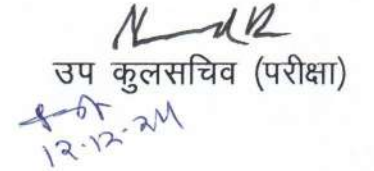 उप कुलसचिव (परीक्षा)
12.12.24